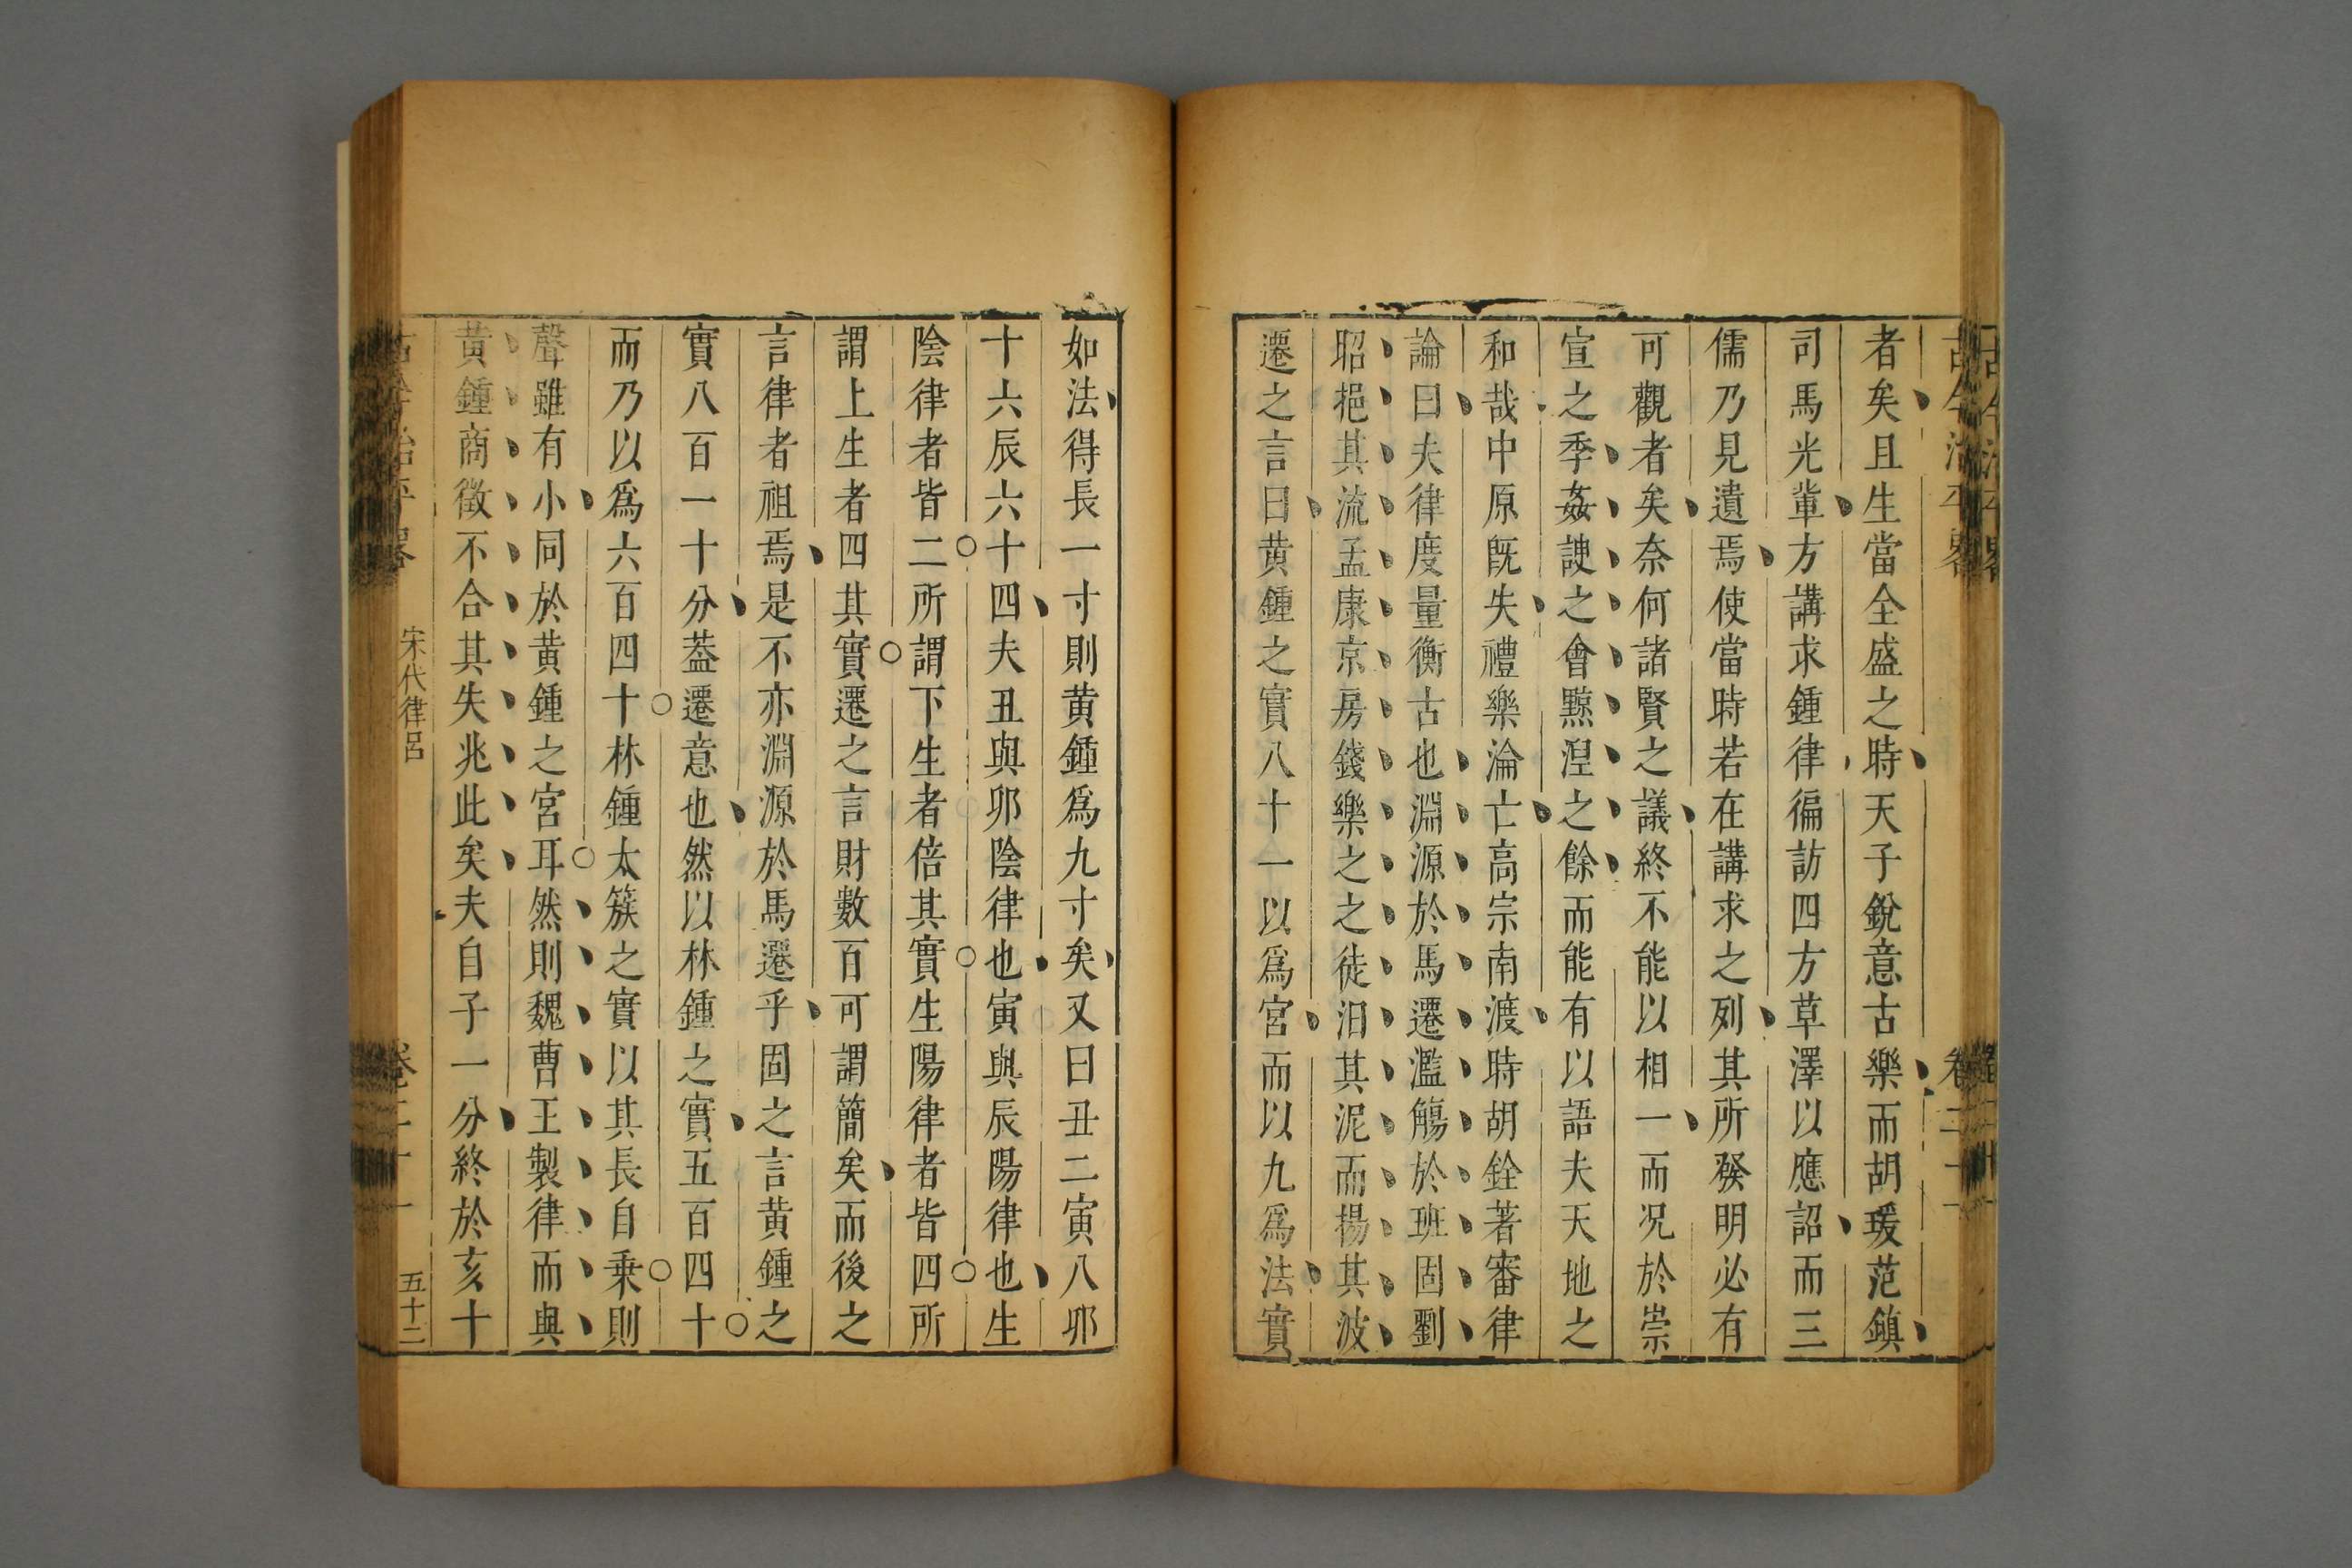 者矣且生當全盛之時天子銳意古樂而胡瑗范鎮
司馬光軰方講求鍾律徧訪四方草澤以應詔而三
儒乃見遺焉使當時若在講求之列其所發明必有
可觀者矣奈何諸賢之議終不能以相一而况於崇
宣之季姦諛之會黥湼之餘而能有以語夫天地之
和哉中原旣失禮樂淪亡高宗南渡時胡銓著審律
論曰夫律度量衡古也淵源於馬遷濫觴於班固劉
昭挹其流孟康京房錢樂之之徒汩其泥而揚其波
遷之言曰黄鍾之實八十一以爲宮而以九爲法實
如法得長一寸則黄鍾爲九寸矣又曰丑二寅八夘
十六辰六十四夫丑與卯陰律也寅與辰陽律也生
陰律者皆二所謂下生者倍其實生陽律者皆四所
謂上生者四其實遷之言財數百可謂簡矣而後之
言律者祖焉是不亦淵源於馬遷乎固之言黄鍾之
實八百一十分葢遷意也然以林鍾之實五百四十
而乃以爲六百四十林鍾太簇之實以其長自乗則
聲雖有小同於黄鍾之宮耳然則魏曹王製律而與
黄鍾商徵不合其失兆此矣夫自子一分終於亥十
宋代律呂
五十二